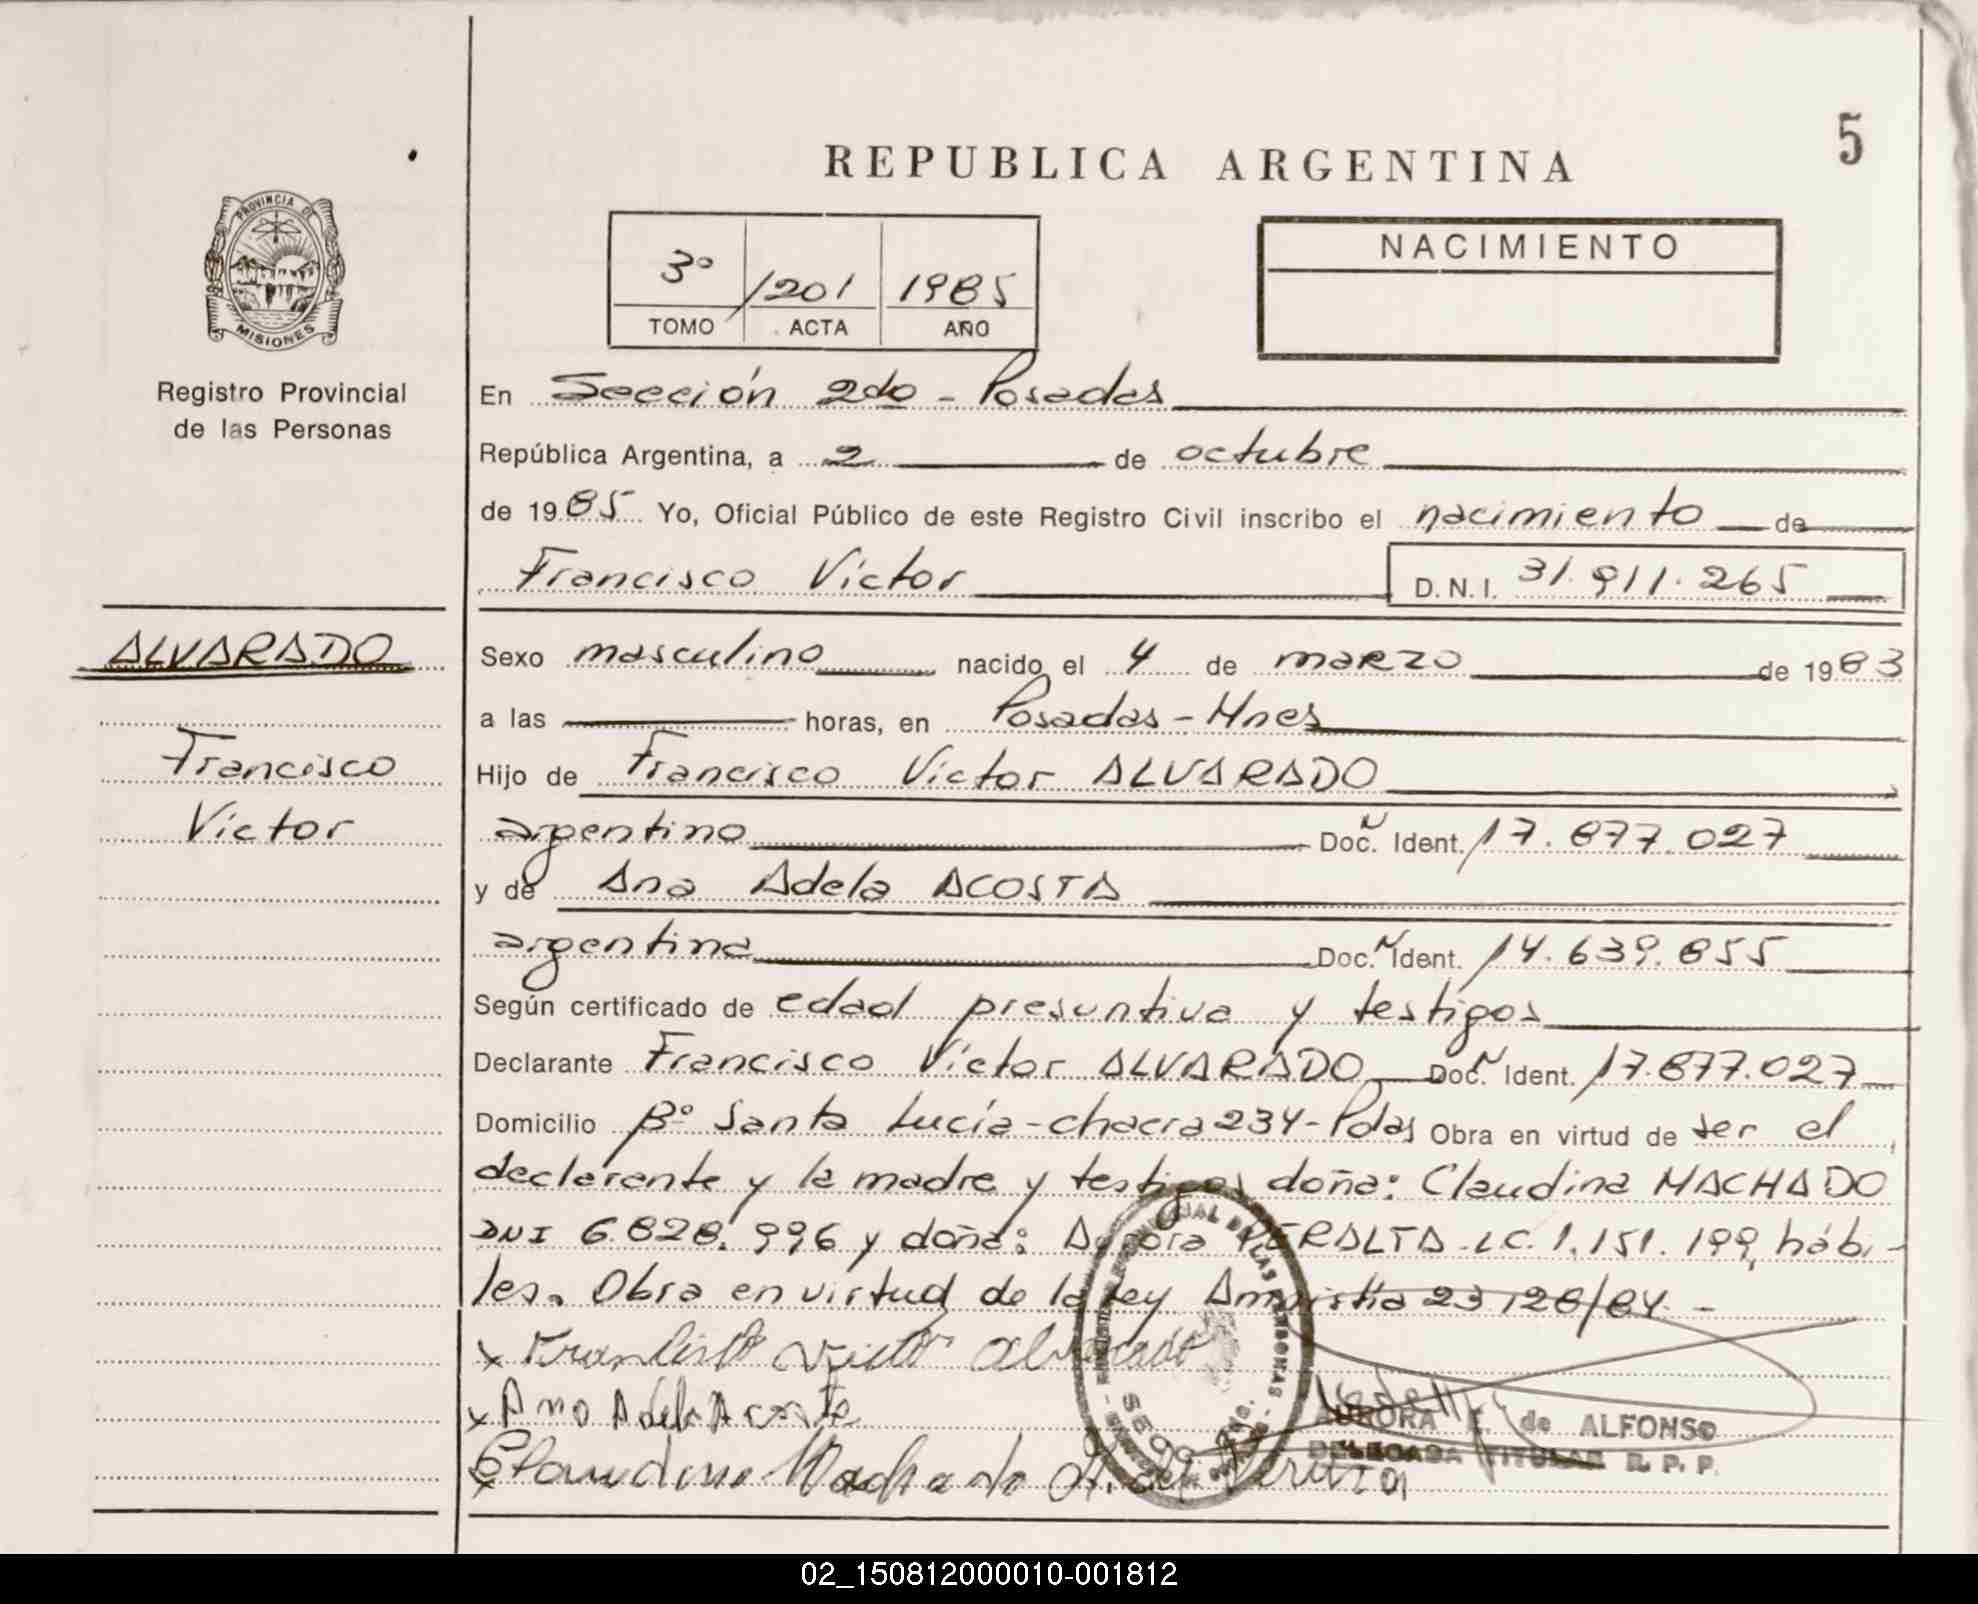 5
REPUBLICA ARGENTINA
PROVINCIA DE
MISIONES
3º /201 1985
TOMO ACTA AÑO
NACIMIENTO
Registro Provincial
de las Personas
En Sección 2do - Posadas
República Argentina, a 2 de octubre
de 1985 Yo, Oficial Público de este Registro Civil inscribo el nacimiento de
Francisco Víctor D.N.I. 31.911.265
ALVARADO
Francisco
Víctor
Sexo masculino nacido el 4 de marzo de 1983
a las horas, en Posadas - Mnes
Hijo de Francisco Víctor ALVARADO
argentino Doc. N Ident. 17.877.027
y de Ana Adela ACOSTA
argentina Doc. N Ident. 14.639.855
Según certificado de edad presuntiva y testigos
Declarante Francisco Víctor ALVARADO Doc. N Ident. 17.877.027
Domicilio Bº Santa Lucía - chacra 234 - Pdas Obra en virtud de ser el
declarante y la madre y testigos doña: Claudina MACHADO
DNI 6.828.996 y doña: Aurora PERALTA L.C. 1.151.199, hábi-
les. Obra en virtud de la Ley Amnistia 23128/84. -
x Francisco Victor Alvarado
x Ana Adela Acosta
x Claudina Machado
AURORA de ALFONSO
DELEGADA TITULAR R. P. P.
02_150812000010-001812